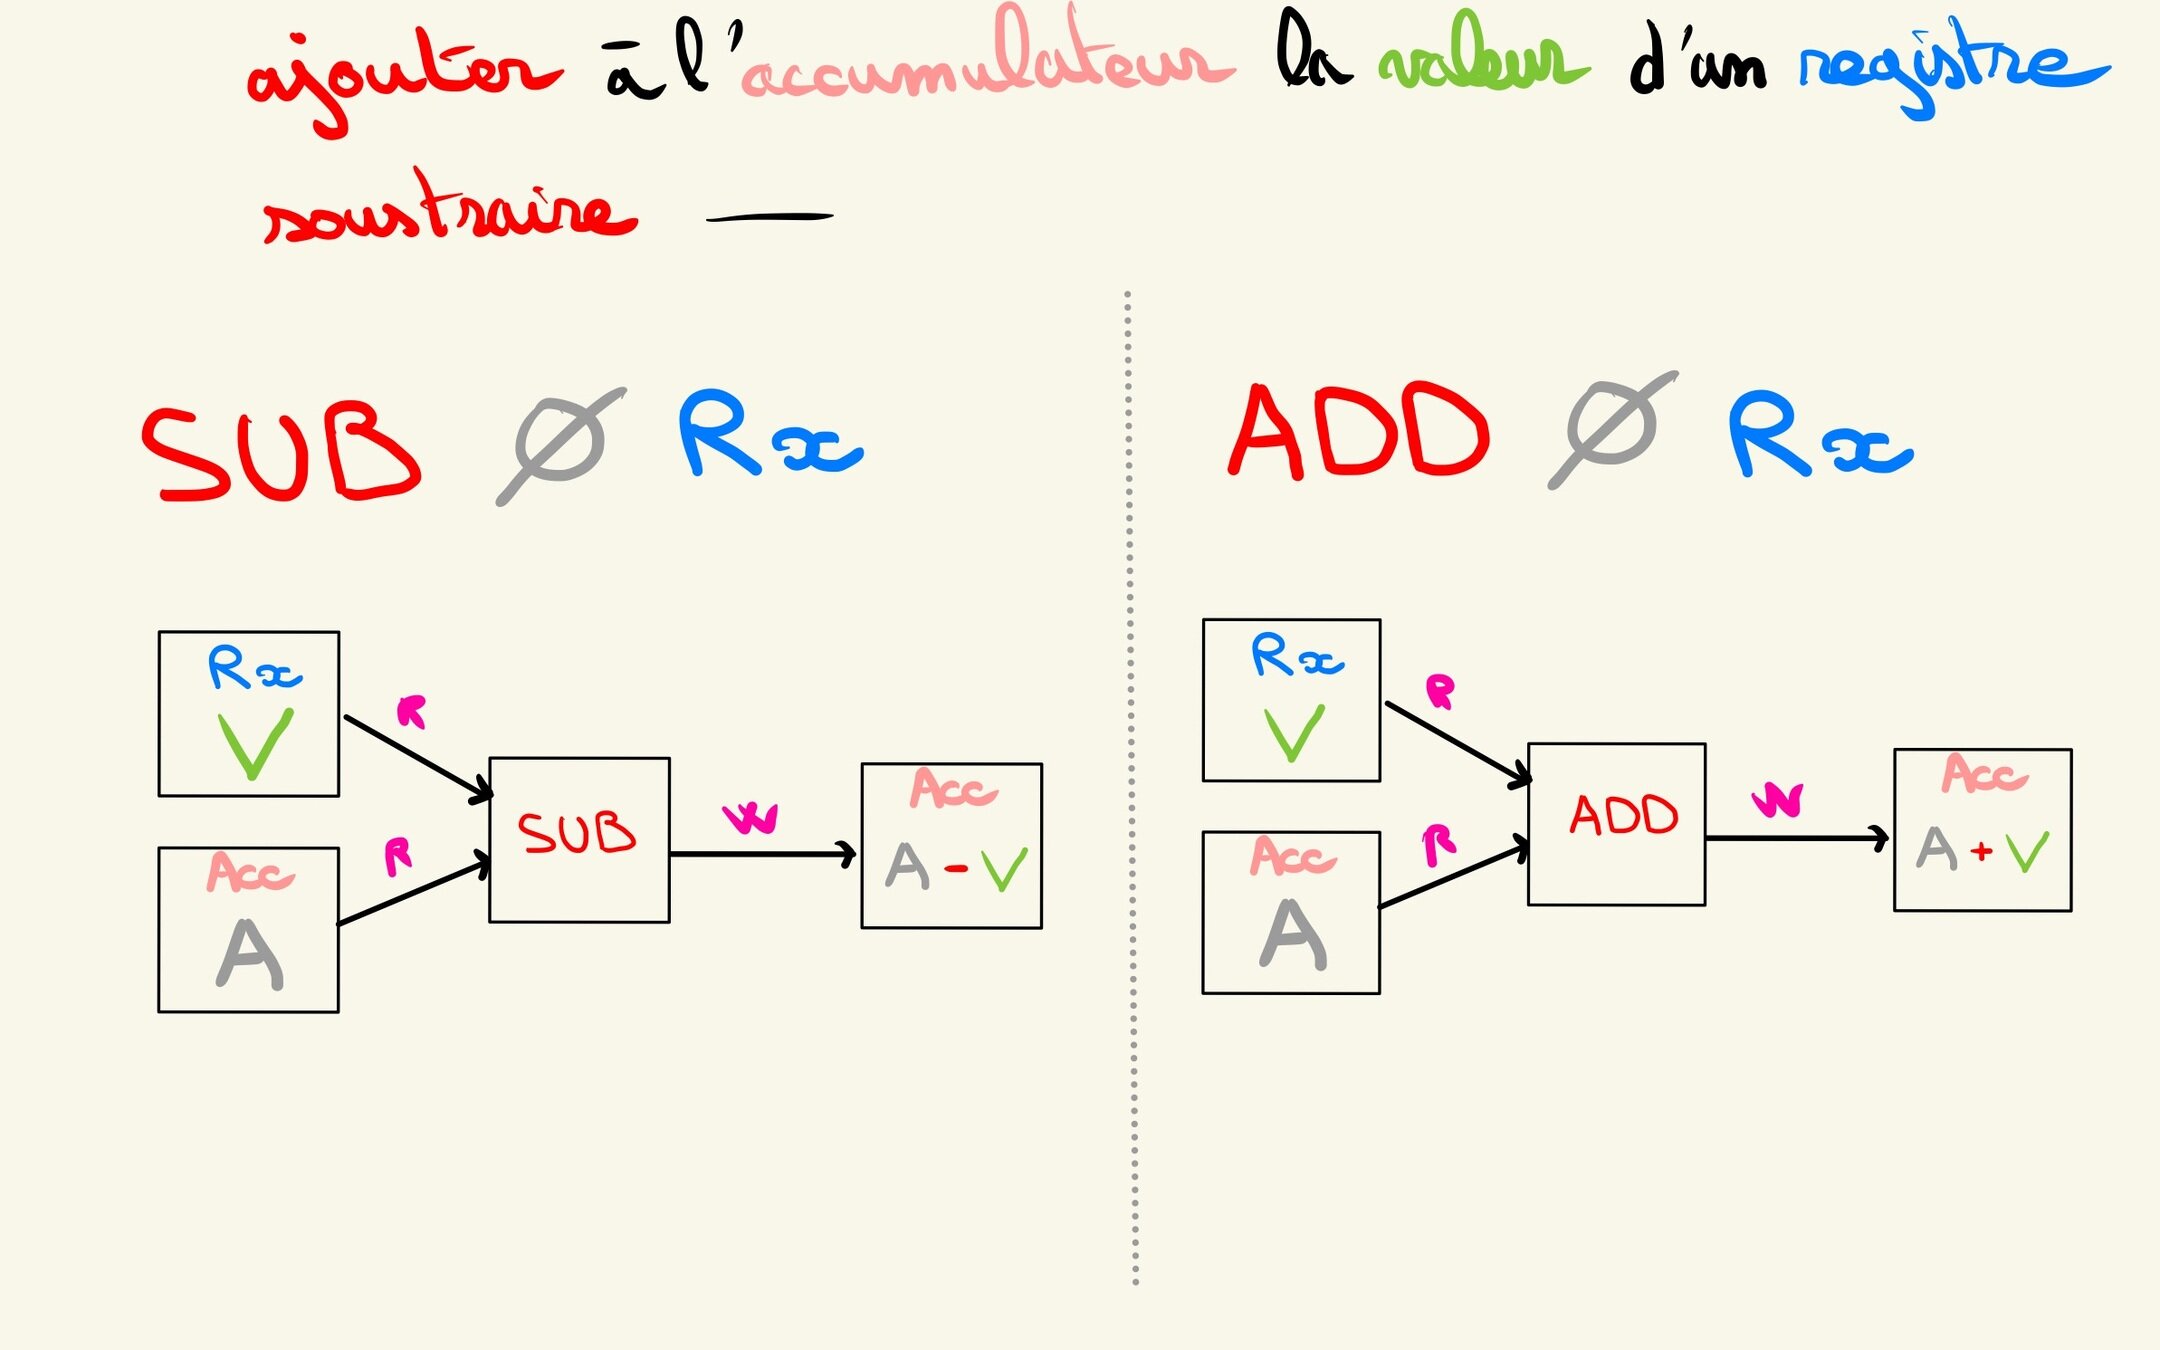 ajouter à l'accumulateur la valeur d'un registre
soustraire —
SUB Ø Rx
Rx
V
R
Acc
A
R
SUB
W
Acc
A - V
ADD Ø Rx
Rx
V
R
Acc
A
R
ADD
W
Acc
A + V